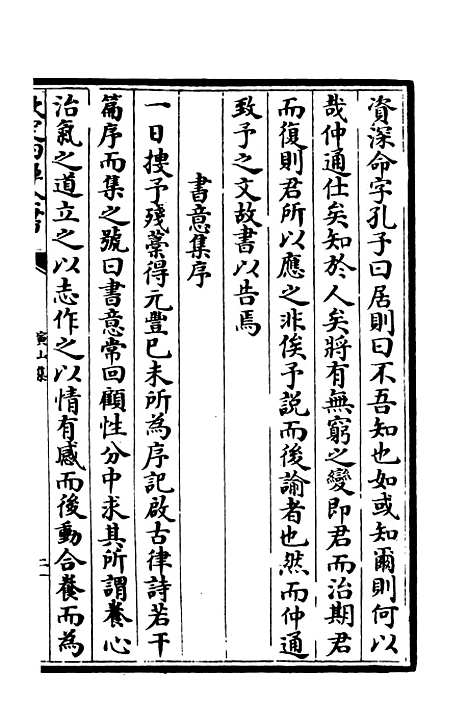 資深命字孔子曰居則曰不吾知也如或知爾則何以
哉仲通仕矣知於人矣將有無窮之變即君而治期君
而復則君所以應之非俟予說而後諭者也然而仲通
致予之文故書以告焉
書意集序
一日搜予殘藁得元豐已未所為序記啟古律詩若干
篇序而集之號曰書意常回顧性分中求其所謂養心
治氣之道立之以志作之以情有感而後動合養而為
演山集
二